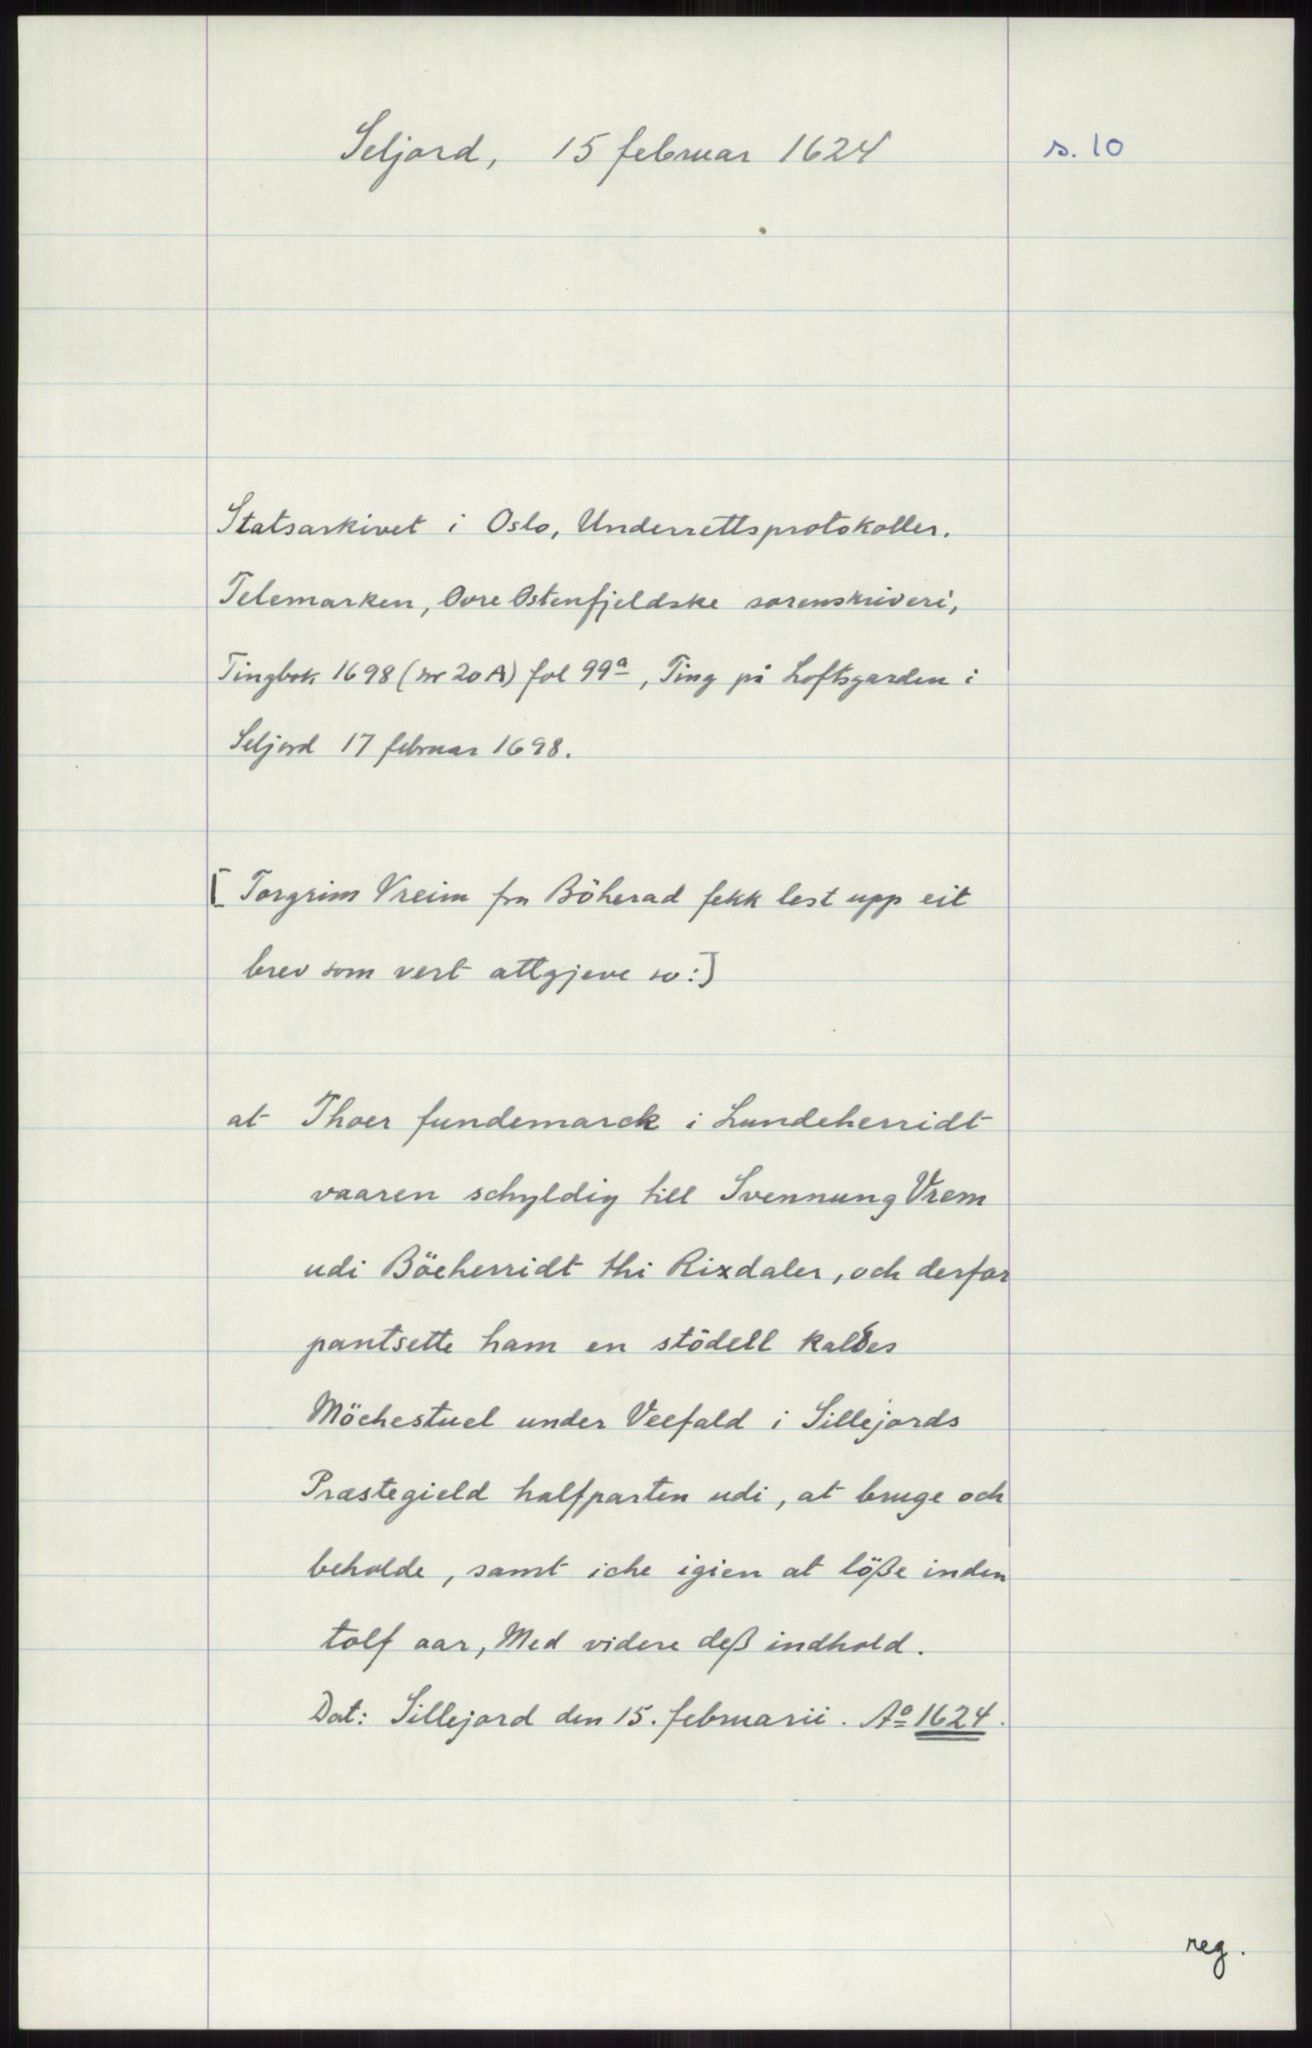 Seljord, 15 februar 1624
s. 10
Statsarkivet i Oslo, Underrettsprotokoller.
Telemarken, Øvre Østenfjeldske sorenskriveri,
Tingbok 1698 (nr 20 A) fol 99a, Ting på Loftsgarden i
Seljord 17 februar 1698.
[Torgrim Vreim fra Böherad fekk lest upp eit
brev som vert attgjeve so:]
at Thoer fundemarck i Lundeherridt
vaaren schyldig till Svennung Vrem
udi Böeherridt thi Rixdaler, och derfor
pantsette ham en stödell kaldes
Möchestuel under Veefald i Sillejords
Præstegield halfparten udi, at bruge och
beholde, samt iche igien at löße inden
tolf aar, Med videre deß indhold.
Dat: Sillejord den 15. februarii. Ao 1624.
reg.